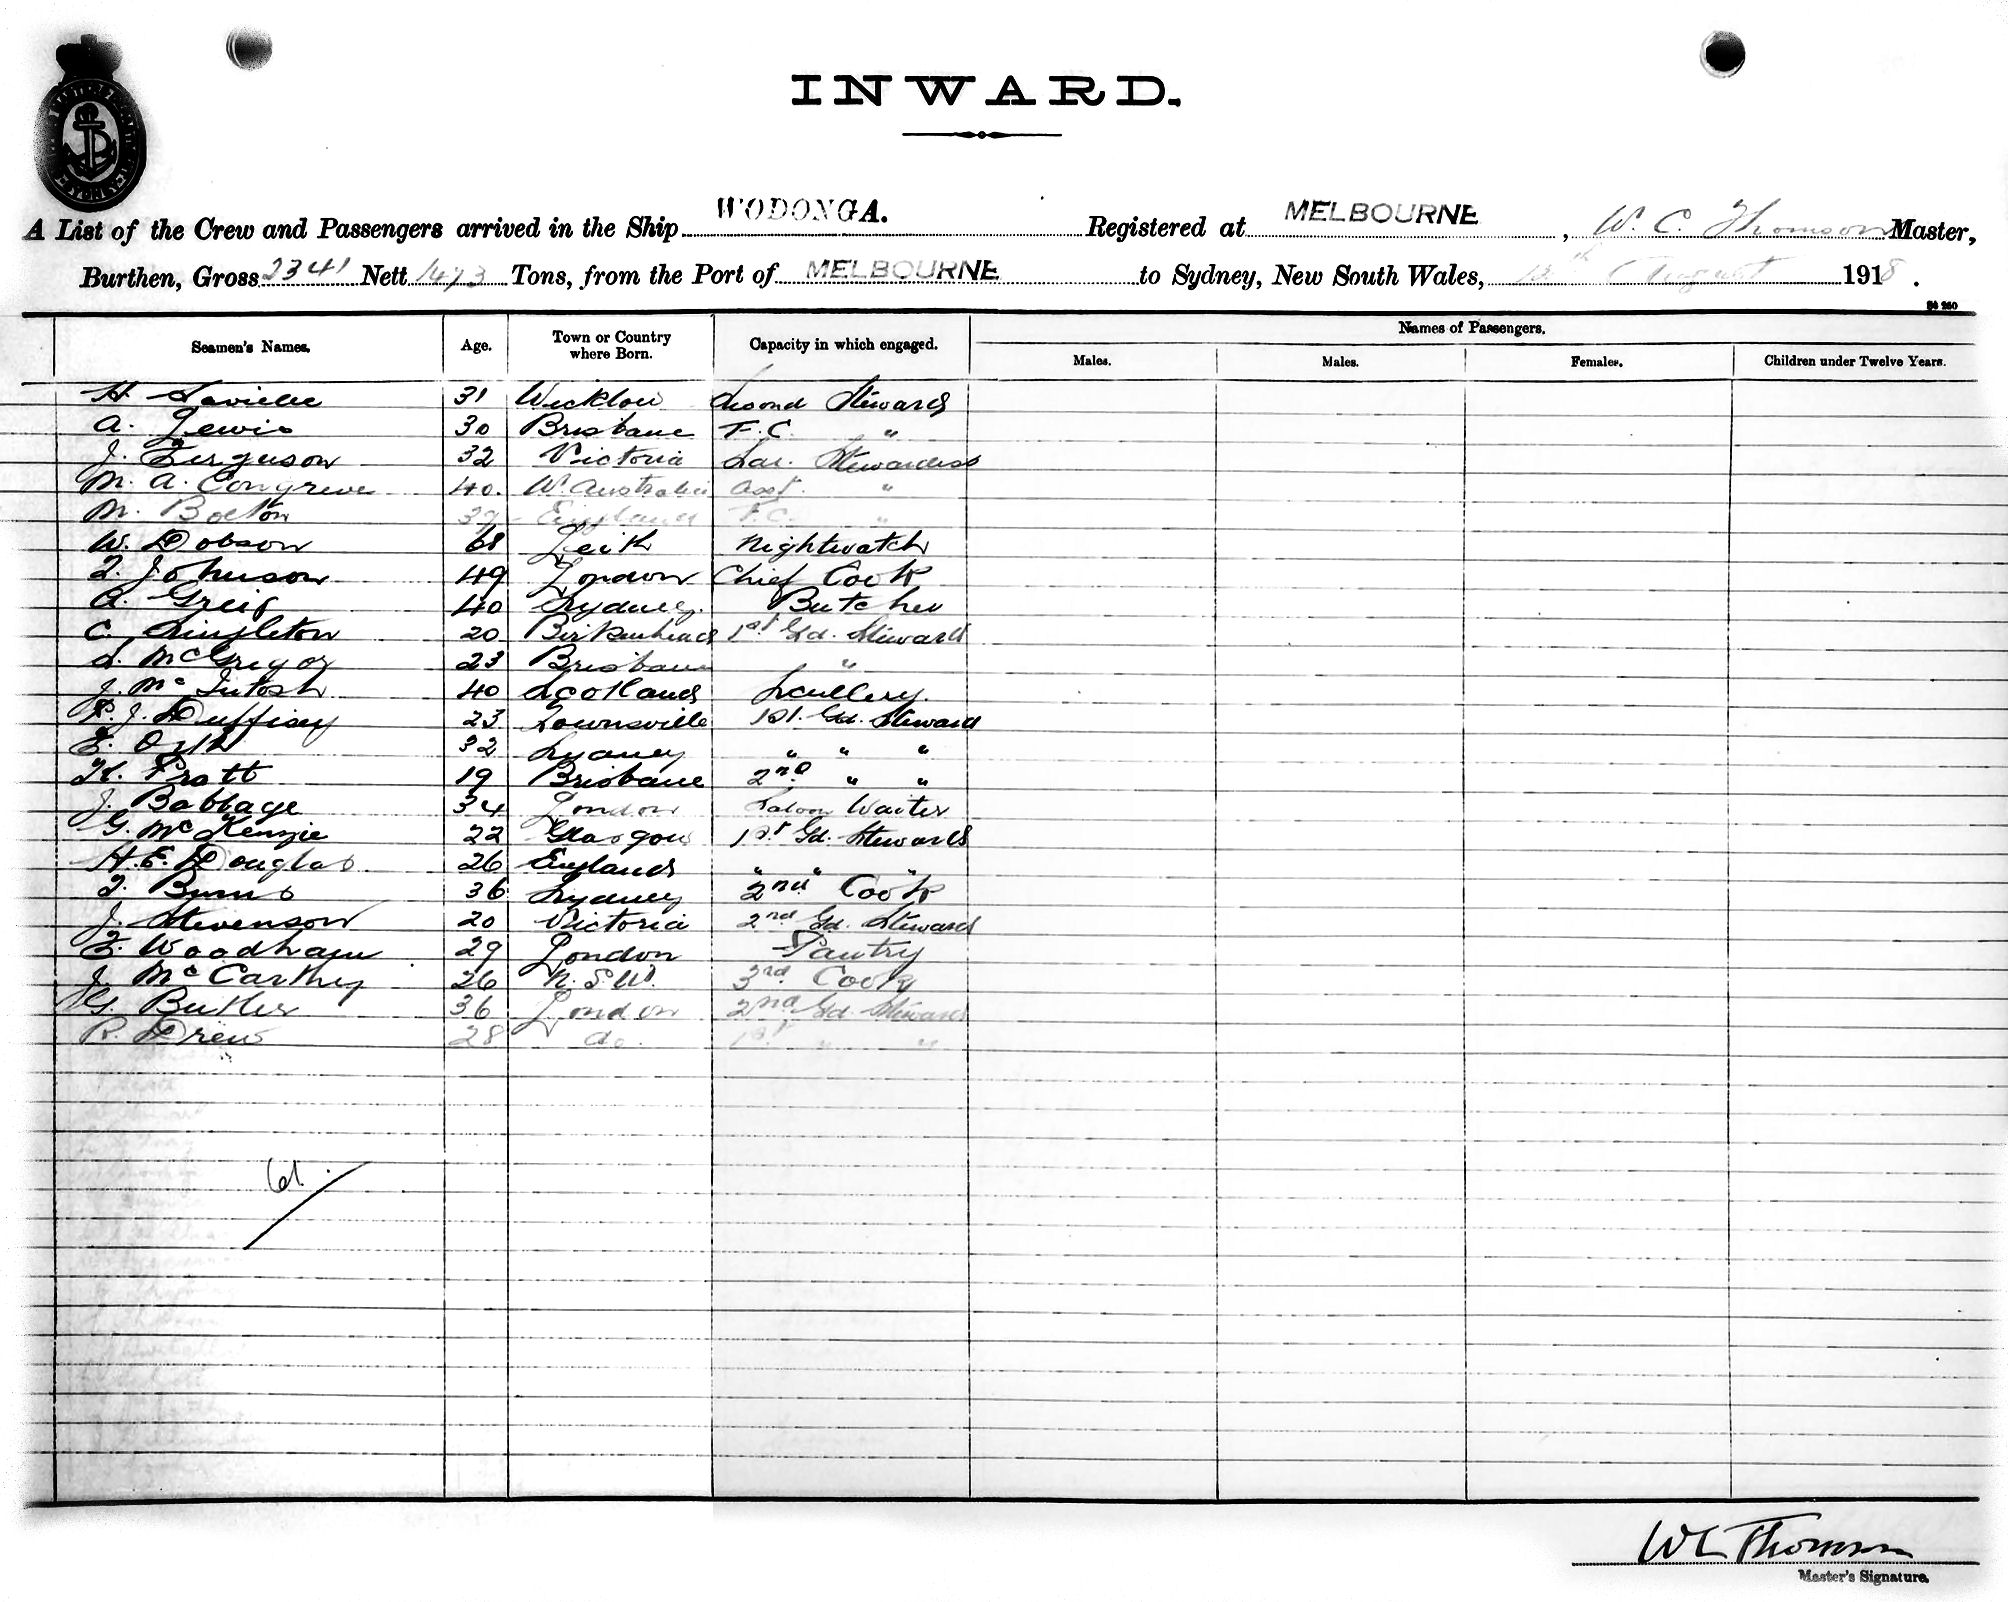 INWARD.
A List of the Crew and Passengers arrived in the Ship WODONGA. Registered at MELBOURNE, W. C. Thomson Master,
Burthen, Gross 2341 Nett 1473 Tons, from the Port of MELBOURNE to Sydney, New South Wales, August 1918.
Seamen's Names. Age. Town or Country where Born. Capacity in which engaged. Names of Passengers.
Males. Males. Females. Children under Twelve Years.
H. Saville 31 Wicklow Second Steward
A. Lewis 30 Brisbane F.C. "
J. Ferguson 32 Victoria Sal. Stewardess
M. A. Congreve 40. W. Australia Asst. "
M. Bolton England F.C. "
W. Dobson 68 Leith Nightwatch
T. Johnson 49 London Chief Cook
A. Greig 40 Sydney. Butcher
C. Singleton 20 Birkenhead 1st Gd. Steward
McGregor 23 Brisbane "
J. McIntosh 40 Scotland Scullery.
P. J. Duffisy 23 Townsville 1st. Gd. Steward
32 Sydney " " "
H. Pratt 19 Brisbane 2nd " "
J. Babbage 34 London Saloon Waiter
G. McKenzie 22 Glasgow 1st Gd. Steward
H. E. Douglas 26 England " " "
T. Burns 36 Sydney 2nd Cook
J. Stevenson 20 Victoria 2nd Gd. Steward
E. Woodham 29 London Pantry
J. McCarthy 26 N.S.W. 3rd. Cook
G. Butler 36 London 2nd Gd. Steward
R. Drew 28 do. 1st " "
61.
W C Thomson
Master's Signature.